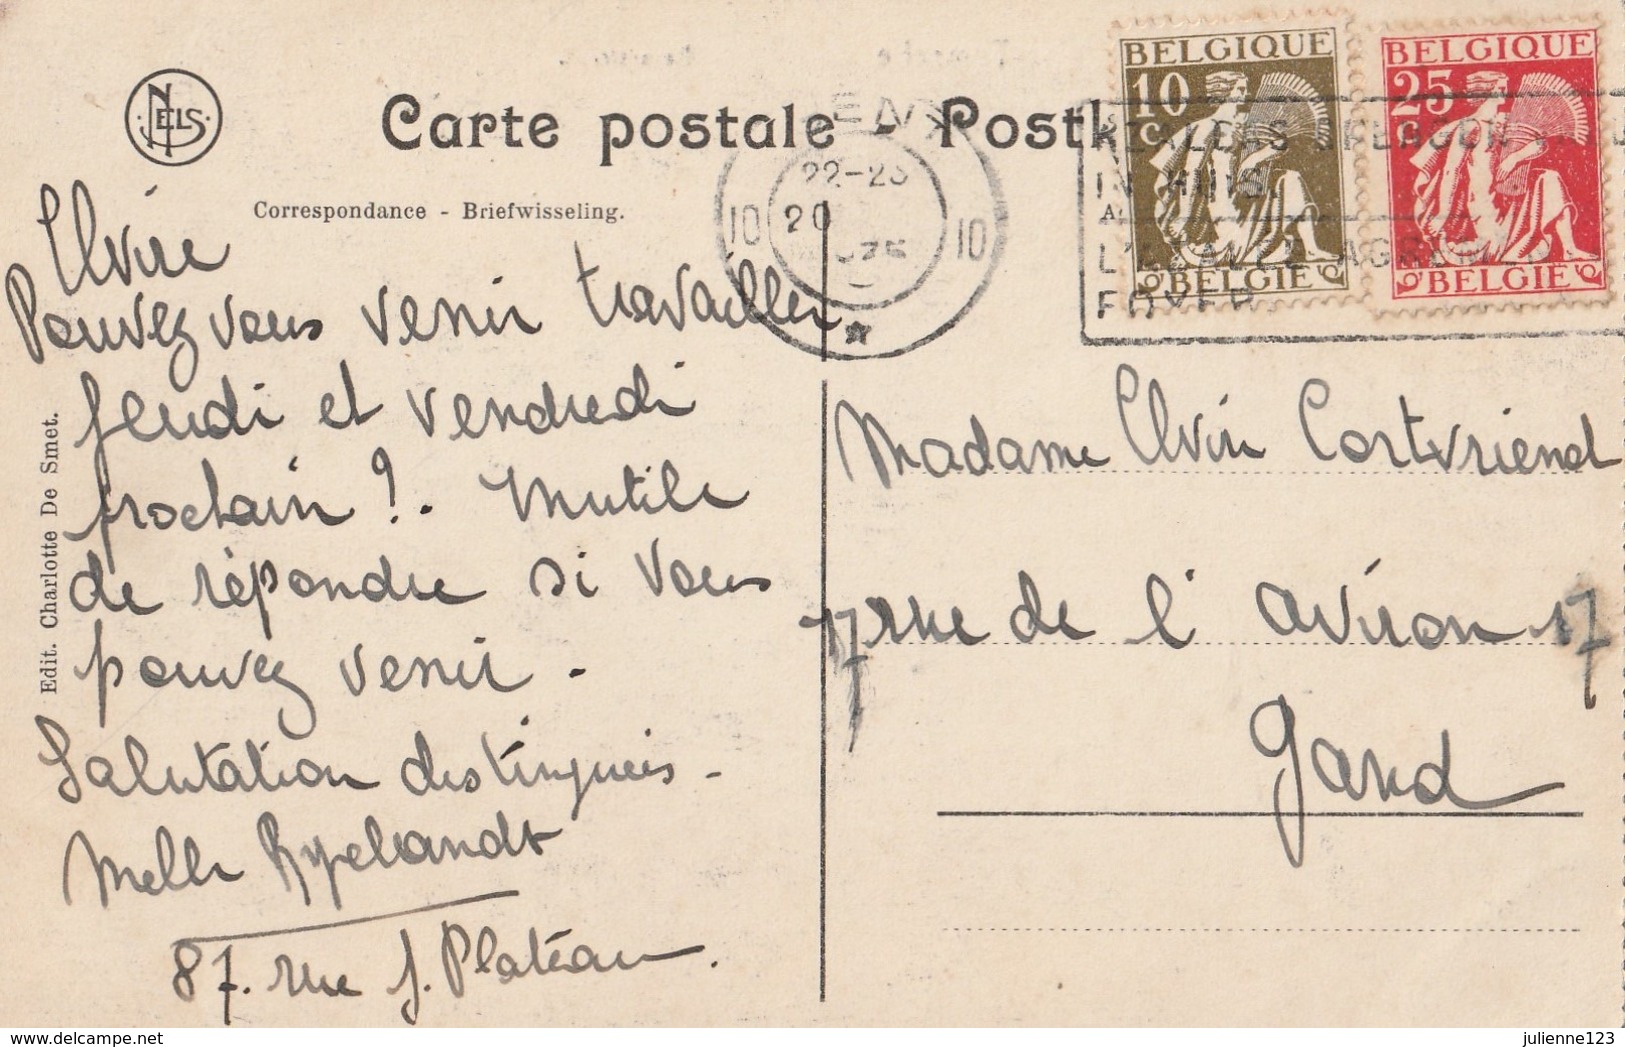 NELS
Carte postale - Postk
Correspondance - Briefwisseling.
BELGIQUE
10
BELGIE
BELGIQUE
25
BELGIE
22-23
10 20 10
IN HUIS
FOYER
Elvire
Pouvez vous venir travailler
jeudi et vendredi
prochain ?. Inutile
de répondre si vous
pouvez venir.
Salutation distinguées -
Melle Ryelandt
87. rue J. Plateau.
Edit. Charlotte De Smet.
Madame Elvire Cortvriend
17 rue de l' aviron 17
Gand
julienne123